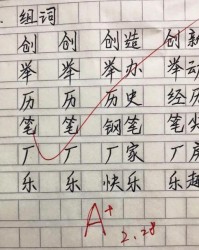 组词
创 创 创造 创新
举 举 举办 举动
历 历 历史 经历
笔 笔 钢笔 笔尖
厂 厂 厂家 厂房
乐 乐 快乐 乐趣
A+
2.28